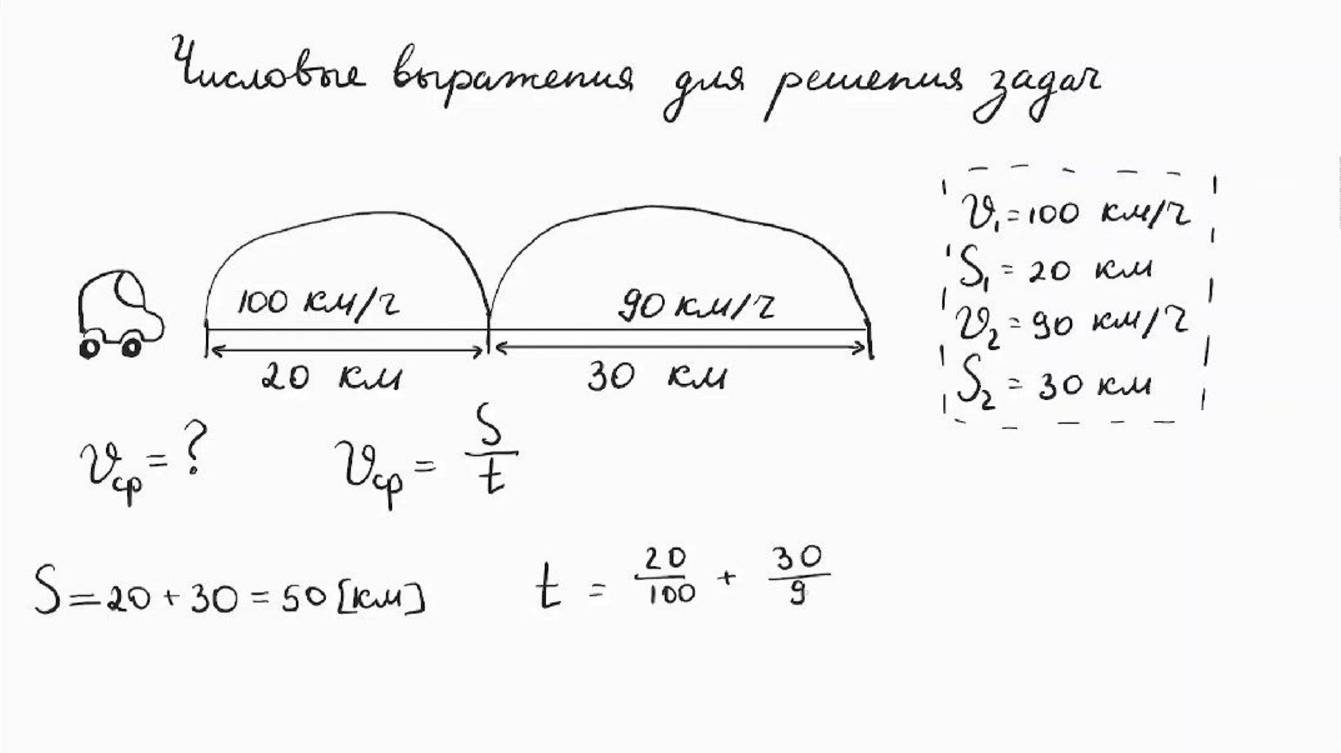 Числовые выражения для решения задач
v₁ = 100 км/ч
S₁ = 20 км
v₂ = 90 км/ч
S₂ = 30 км
100 км/ч 90 км/ч
20 км 30 км
vср = ? vср = S/t
S = 20 + 30 = 50 [км] t = 20/100 + 30/9